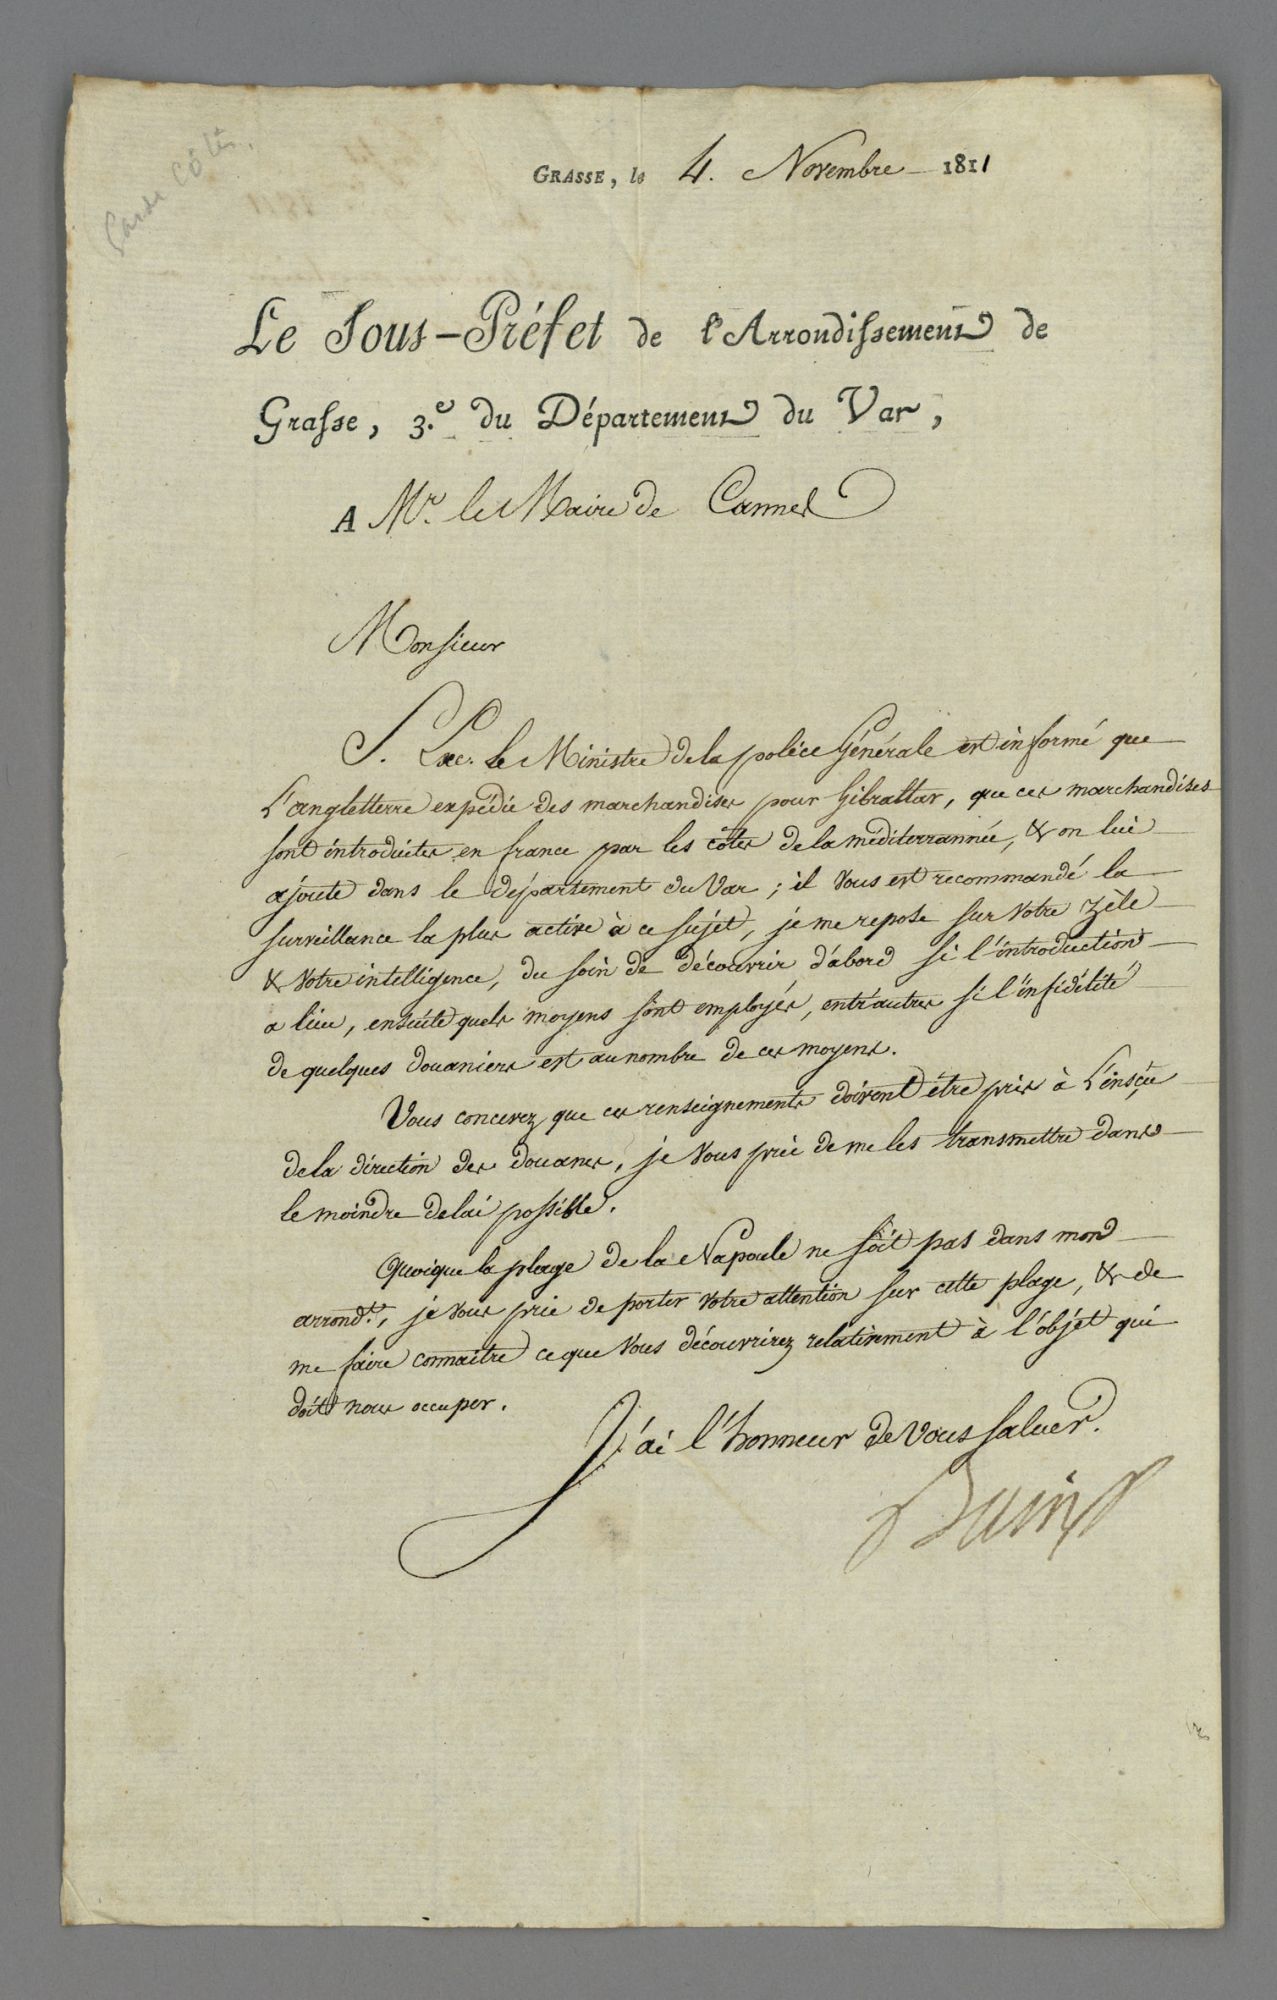 Garde Côtes.
GRASSE, le 4. Novembre 1811
Le Sous-Préfet de l'Arrondissement de
Grasse, 3.e du Département du Var,
A Mr. le Maire de Cannes
Monsieur
S. Exc. le Ministre de la police Générale est informé que
L'angletterre expédie des marchandises pour Gibraltar, que ces marchandises
sont introduites en france par les côtes de la méditerrannée, & on lui
ajoute dans le département du Var ; il vous est recommandé la
surveillance la plus active à ce sujet, je me repose sur votre zèle
& votre intelligence, du soin de découvrir d'abord si l'introduction
a lieu, ensuite quels moyens sont employés, entr'autres si l'infidélité
de quelques douaniers est au nombre de ces moyens.
Vous concevez que ces renseignements doivent être pris à L'insçu
de la direction des douanes, je vous prie de me les transmettre dans
le moindre delai possible.
Quoique la plage de la Napoule ne soit pas dans mon
arrond.t, je vous prie de porter votre attention sur cette plage, & de
me faire connaitre ce que vous découvrirez relativement à l'objet qui
doit nous occuper.
J'ai l'honneur de vous saluer.